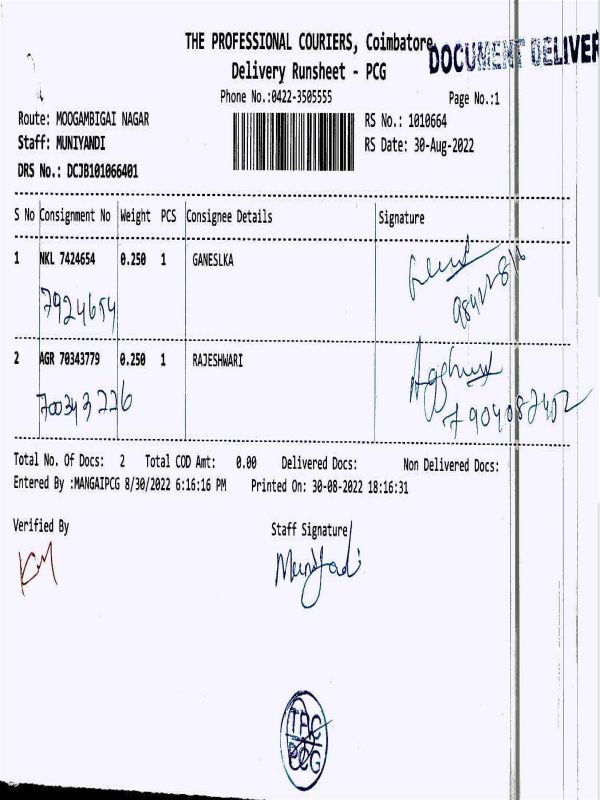 THE PROFESSIONAL COURIERS, Coimbatore
DOCUMENT DELIVER
Delivery Runsheet - PCG
Phone No.:0422-3505555
Page No.:1
Route: MOOGAMBIGAI NAGAR
RS No.: 1010664
Staff: MUNIYANDI
RS Date: 30-Aug-2022
DRS No.: DCJB101066401
S No Consignment No Weight PCS Consignee Details Signature
1 NKL 7424654 0.250 1 GANESLKA
7924654
2 AGR 70343779 0.250 1 RAJESHWARI
7904087402
Total No. Of Docs: 2 Total COD Amt: 0.00 Delivered Docs: Non Delivered Docs:
Entered By :MANGAIPCG 8/30/2022 6:16:16 PM Printed On: 30-08-2022 18:16:31
Verified By Staff Signature
TPC
PCG